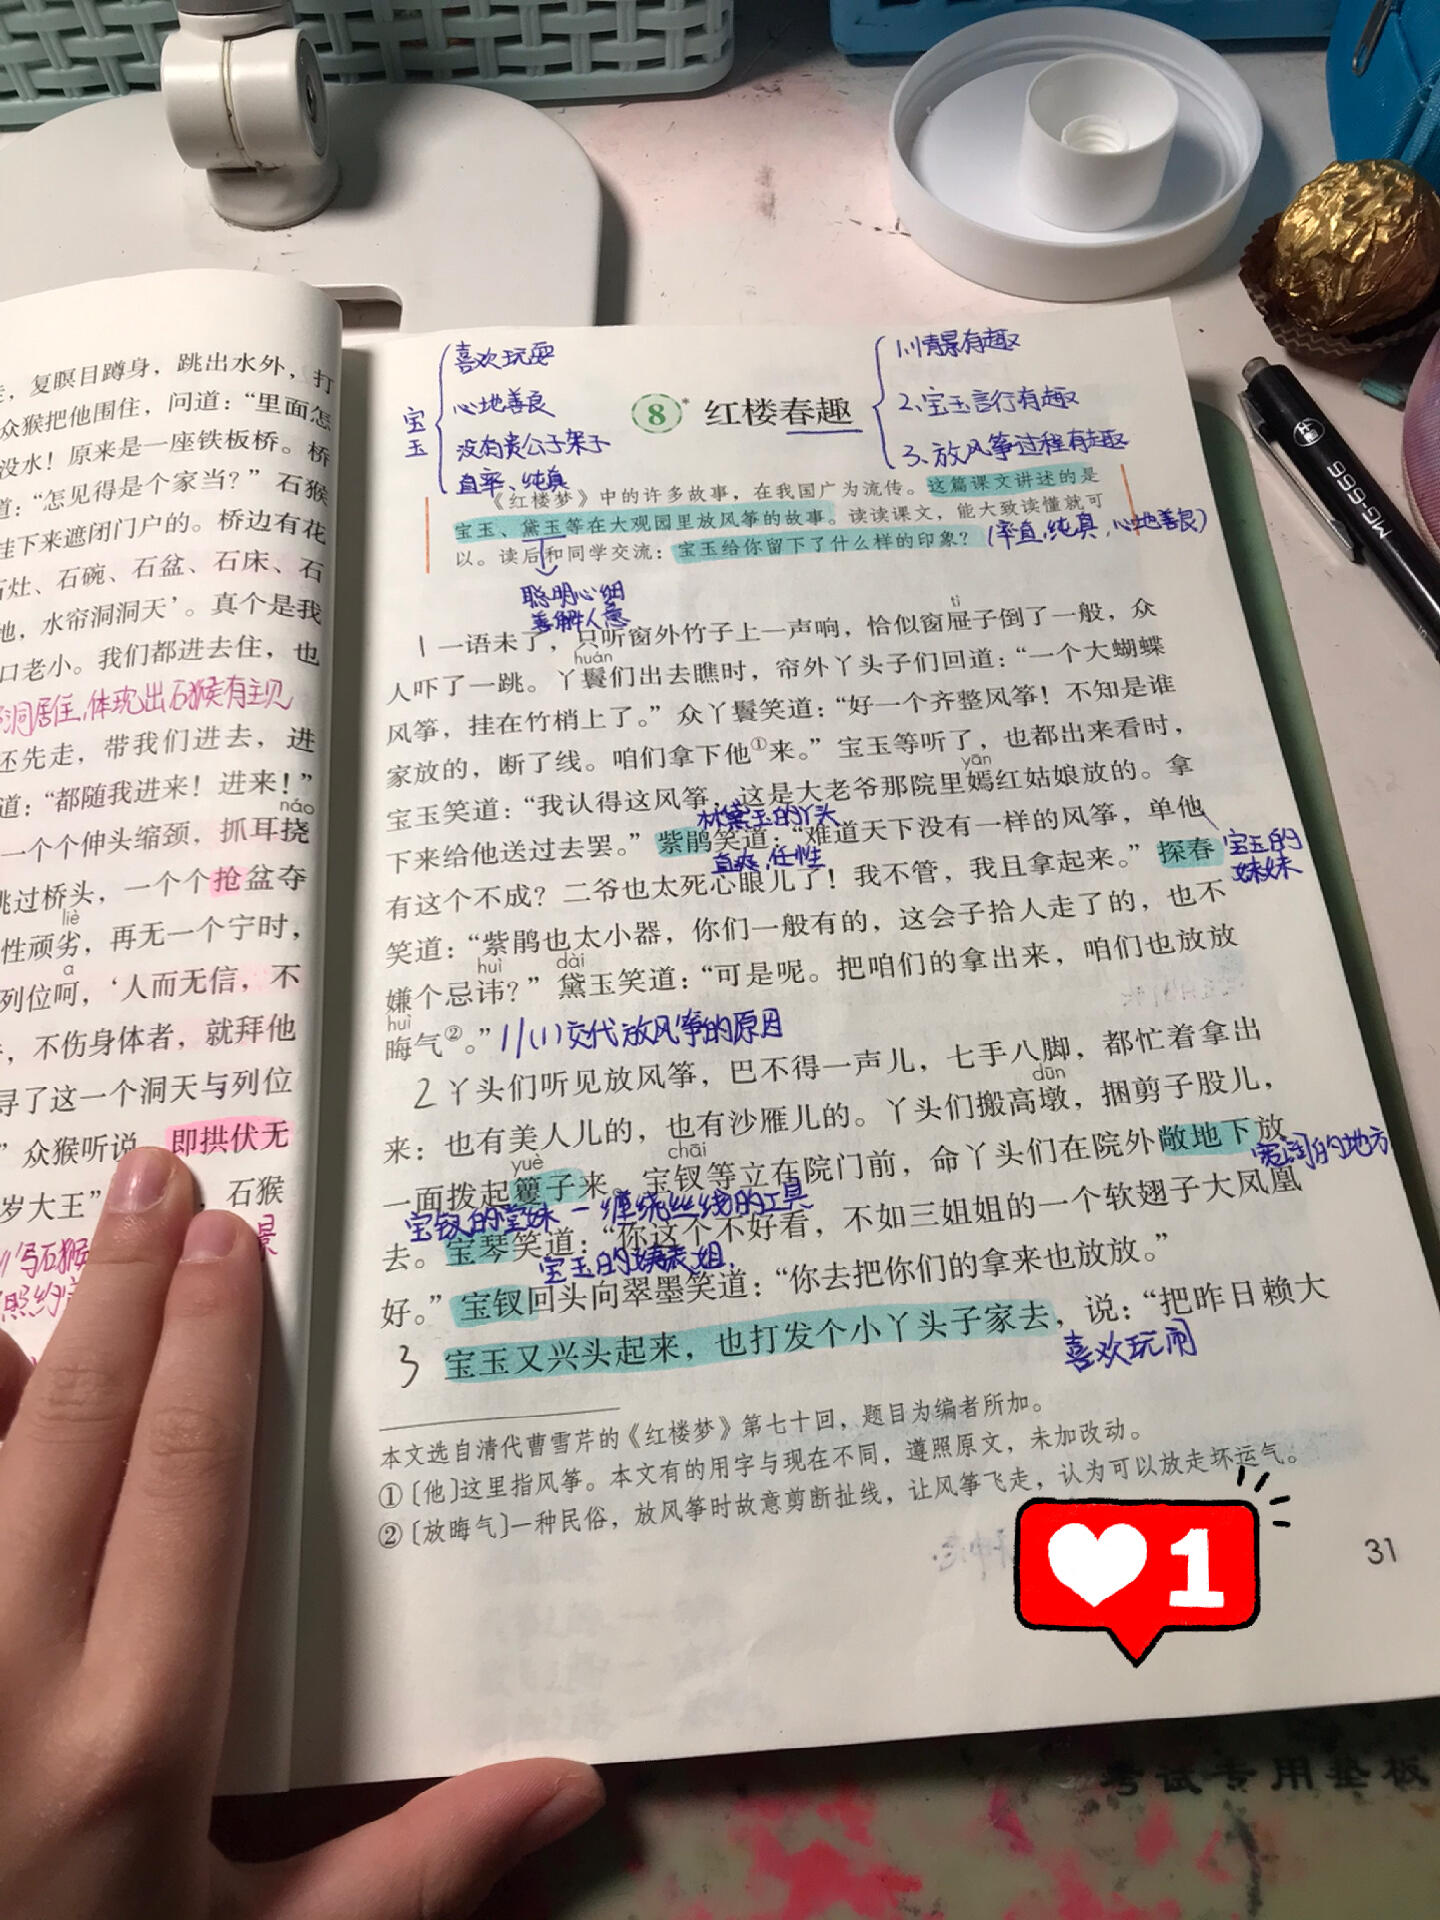 走，复瞑目蹲身，跳出水外，打
众猴把他围住，问道：“里面怎
没水！原来是一座铁板桥。桥
道：“怎见得是个家当？”石猴
挂下来遮闭门户的。桥边有花
石灶、石碗、石盆、石床、石
地，水帘洞洞天’。真个是我
口老小。我们都进去住，也
洞居住，体现出石猴有主见
还先走，带我们进去，进
道：“都随我进来！进来！”
náo
一个个伸头缩颈，抓耳挠
跳过桥头，一个个抢盆夺
liè
性顽劣，再无一个宁时，
ā
列位呵，‘人而无信，不
，不伤身体者，就拜他
寻了这一个洞天与列位
”众猴听说，即拱伏无
岁大王” 石猴
写石猴 景
喜欢玩耍
心地善良
宝玉
没有贵公子架子
直率、纯真
8* 红楼春趣
1、情景有趣
2、宝玉言行有趣
3、放风筝过程有趣
《红楼梦》中的许多故事，在我国广为流传。这篇课文讲述的是
宝玉、黛玉等在大观园里放风筝的故事。读读课文，能大致读懂就可
以。读后和同学交流：宝玉给你留下了什么样的印象？
（率直、纯真、心地善良）
聪明心细
善解人意
tì
1 一语未了，只听窗外竹子上一声响，恰似窗屉子倒了一般，众
huán
人吓了一跳。丫鬟们出去瞧时，帘外丫头子们回道：“一个大蝴蝶
风筝，挂在竹梢上了。”众丫鬟笑道：“好一个齐整风筝！不知是谁
家放的，断了线。咱们拿下他①来。”宝玉等听了，也都出来看时，
yān
宝玉笑道：“我认得这风筝，这是大老爷那院里嫣红姑娘放的。拿
林黛玉的丫头
下来给他送过去罢。”紫鹃笑道：“难道天下没有一样的风筝，单他
直爽、任性
有这个不成？二爷也太死心眼儿了！我不管，我且拿起来。”探春
宝玉的
妹妹
笑道：“紫鹃也太小器，你们一般有的，这会子拾人走了的，也不
huì dài
嫌个忌讳？”黛玉笑道：“可是呢。把咱们的拿出来，咱们也放放
huì
晦气②。” //（1）交代放风筝的原因
2 丫头们听见放风筝，巴不得一声儿，七手八脚，都忙着拿出
dūn
来：也有美人儿的，也有沙雁儿的。丫头们搬高墩，捆剪子股儿，
yuè chāi
一面拨起籰子来。宝钗等立在院门前，命丫头们在院外敞地下放
宽阔的地方
宝钗的堂妹 缠绕丝线的工具
去。宝琴笑道：“你这个不好看，不如三姐姐的一个软翅子大凤凰
宝玉的姨表姐
好。”宝钗回头向翠墨笑道：“你去把你们的拿来也放放。”
3 宝玉又兴头起来，也打发个小丫头子家去，说：“把昨日赖大
喜欢玩闹
本文选自清代曹雪芹的《红楼梦》第七十回，题目为编者所加。
①〔他〕这里指风筝。本文有的用字与现在不同，遵照原文，未加改动。
②〔放晦气〕一种民俗，放风筝时故意剪断扯线，让风筝飞走，认为可以放走坏运气。
31
1
MG-666
考试专用垫板